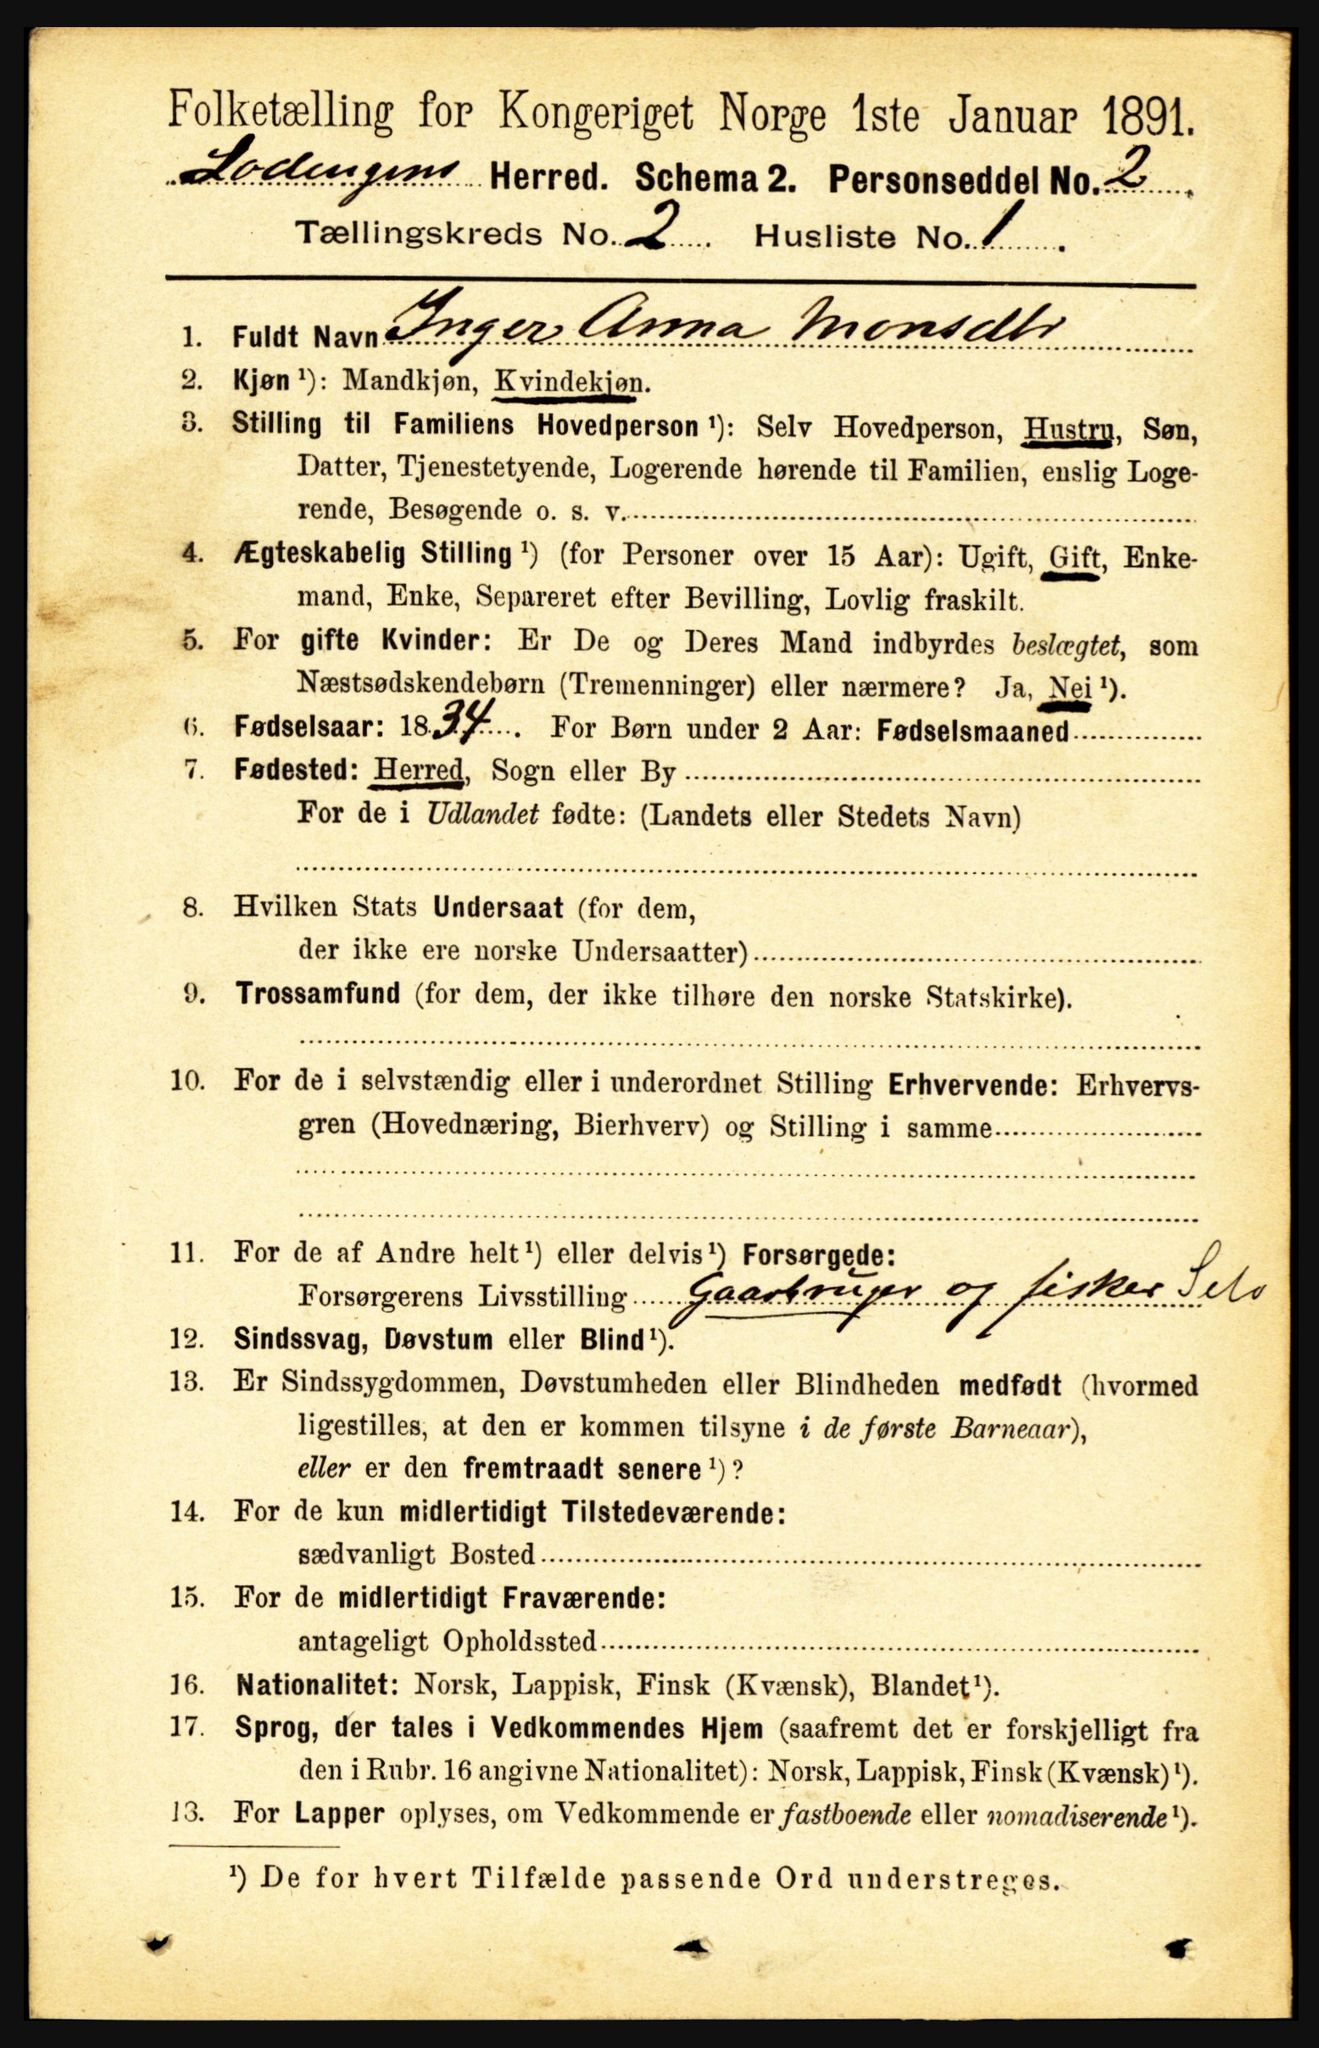 Folketælling for Kongeriget Norge 1ste Januar 1891.
Lodingens Herred. Schema 2. Personseddel No. 2
Tællingskreds No. 2 Husliste No. 1
1. Fuldt Navn Inger Anna Monsdtr
2. Kjøn ¹): Mandkjøn, Kvindekjøn.
3. Stilling til Familiens Hovedperson ¹): Selv Hovedperson, Hustru, Søn,
Datter, Tjenestetyende, Logerende hørende til Familien, enslig Loge-
rende, Besøgende o. s. v.
4. Ægteskabelig Stilling ¹) (for Personer over 15 Aar): Ugift, Gift, Enke-
mand, Enke, Separeret efter Bevilling, Lovlig fraskilt.
5. For gifte Kvinder: Er De og Deres Mand indbyrdes beslægtet, som
Næstsødskendebørn (Tremenninger) eller nærmere? Ja, Nei ¹).
6. Fødselsaar: 1834. For Børn under 2 Aar: Fødselsmaaned
7. Fødested: Herred, Sogn eller By
For de i Udlandet fødte: (Landets eller Stedets Navn)
8. Hvilken Stats Undersaat (for dem,
der ikke ere norske Undersaatter)
9. Trossamfund (for dem, der ikke tilhøre den norske Statskirke).
10. For de i selvstændig eller i underordnet Stilling Erhvervende: Erhvervs-
gren (Hovednæring, Bierhverv) og Stilling i samme
11. For de af Andre helt ¹) eller delvis ¹) Forsørgede:
Forsørgerens Livsstilling Gaarbruger og fisker Selv
12. Sindssvag, Døvstum eller Blind ¹).
13. Er Sindssygdommen, Døvstumheden eller Blindheden medfødt (hvormed
ligestilles, at den er kommen tilsyne i de første Barneaar),
eller er den fremtraadt senere ¹)?
14. For de kun midlertidigt Tilstedeværende:
sædvanligt Bosted
15. For de midlertidigt Fraværende:
antageligt Opholdssted
16. Nationalitet: Norsk, Lappisk, Finsk (Kvænsk), Blandet ¹).
17. Sprog, der tales i Vedkommendes Hjem (saafremt det er forskjelligt fra
den i Rubr. 16 angivne Nationalitet): Norsk, Lappisk, Finsk (Kvænsk) ¹).
13. For Lapper oplyses, om Vedkommende er fastboende eller nomadiserende ¹).
¹) De for hvert Tilfælde passende Ord understreges.